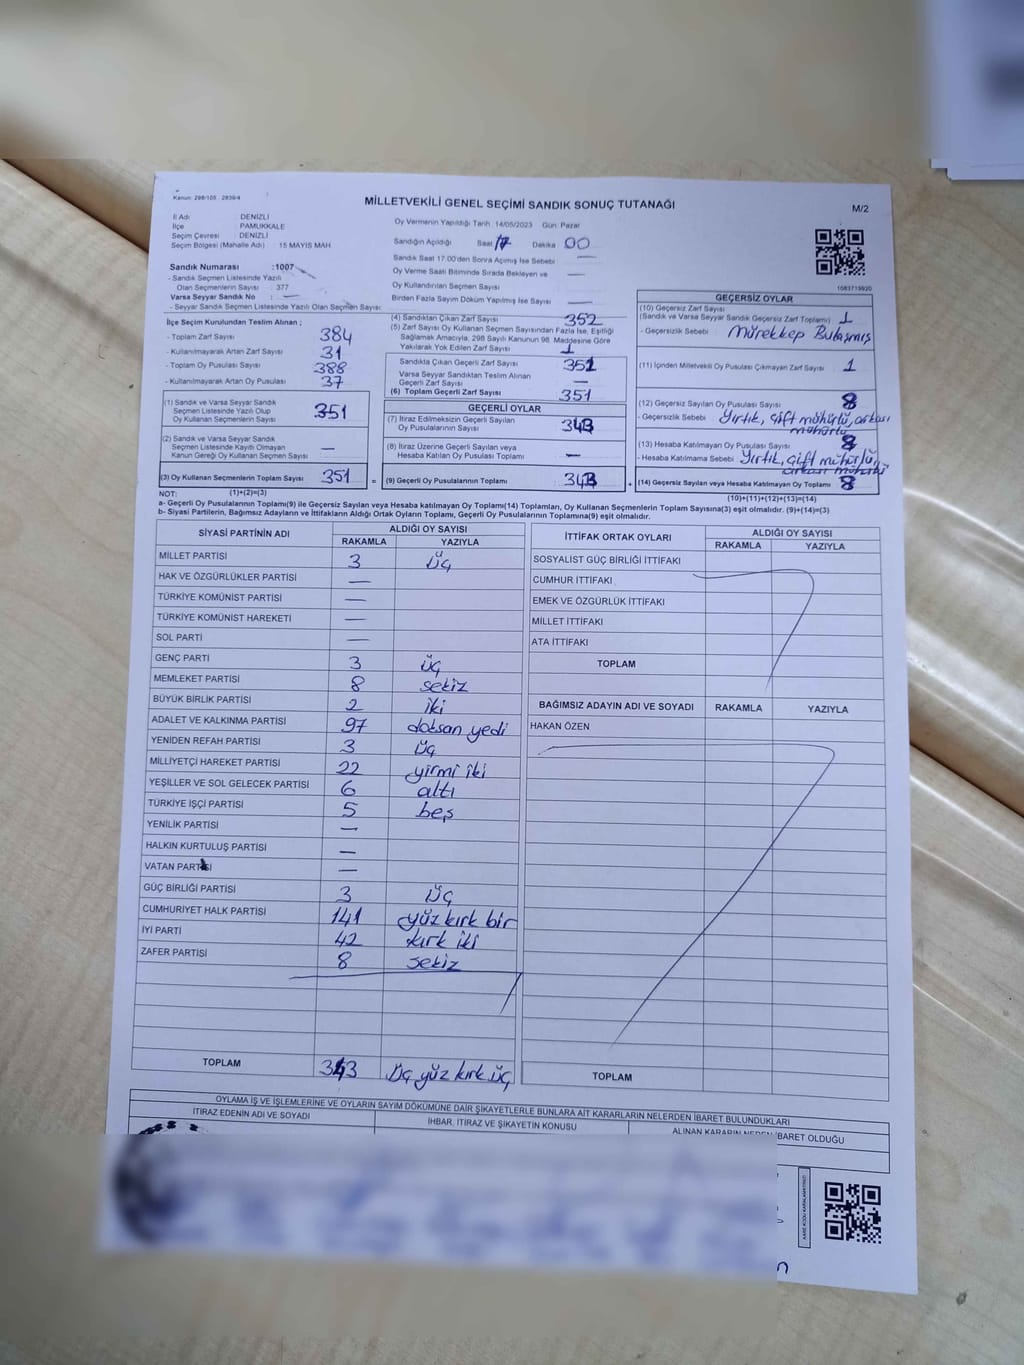 Kanun: 298/105 2839/4
MİLLETVEKİLİ GENEL SEÇİMİ SANDIK SONUÇ TUTANAĞI
M/2
İl Adı DENİZLİ
İlçe PAMUKKALE
Seçim Çevresi DENİZLİ
Seçim Bölgesi (Mahalle Adı) : 15 MAYIS MAH.
Sandık Numarası :1007
- Sandık Seçmen Listesinde Yazılı
Olan Seçmenlerin Sayısı : 377
Varsa Seyyar Sandık No : —
- Seyyar Sandık Seçmen Listesinde Yazılı Olan Seçmen Sayısı:
Oy Vermenin Yapıldığı Tarih :14/05/2023 Gün: Pazar
Sandığın Açıldığı Saat 17 Dakika 00
Sandık Saat 17.00'den Sonra Açılmış İse Sebebi —
Oy Verme Saati Bitiminde Sırada Bekleyen ve —
Oy Kullandırılan Seçmen Sayısı
Birden Fazla Sayım Döküm Yapılmış İse Sayısı —
1083719920
İlçe Seçim Kurulundan Teslim Alınan ;
- Toplam Zarf Sayısı 384
- Kullanılmayarak Artan Zarf Sayısı 31
- Toplam Oy Pusulası Sayısı 388
- Kullanılmayarak Artan Oy Pusulası 37
(1) Sandık ve Varsa Seyyar Sandık
Seçmen Listesinde Yazılı Olup
Oy Kullanan Seçmenlerin Sayısı 351
(2) Sandık ve Varsa Seyyar Sandık
Seçmen Listesinde Kaydı Olmayan
Kanun Gereği Oy Kullanan Seçmen Sayısı —
(3) Oy Kullanan Seçmenlerin Toplam Sayısı 351 =
(4) Sandıktan Çıkan Zarf Sayısı 352
(5) Zarf Sayısı Oy Kullanan Seçmen Sayısından Fazla İse, Eşitliği
Sağlamak Amacıyla, 298 Sayılı Kanunun 98. Maddesine Göre
Yakılarak Yok Edilen Zarf Sayısı 1
Sandıkta Çıkan Geçerli Zarf Sayısı 351
Varsa Seyyar Sandıktan Teslim Alınan
Geçerli Zarf Sayısı —
(6) Toplam Geçerli Zarf Sayısı 351
GEÇERLİ OYLAR
(7) İtiraz Edilmeksizin Geçerli Sayılan
Oy Pusulalarının Sayısı 343
(8) İtiraz Üzerine Geçerli Sayılan veya
Hesaba Katılan Oy Pusulası Toplamı —
(9) Geçerli Oy Pusulalarının Toplamı 343 +
GEÇERSİZ OYLAR
(10) Geçersiz Zarf Sayısı
(Sandık ve Varsa Seyyar Sandık Geçersiz Zarf Toplamı) 1
- Geçersizlik Sebebi Mürekkep Bulaşmış
(11) İçinden Milletvekili Oy Pusulası Çıkmayan Zarf Sayısı 1
(12) Geçersiz Sayılan Oy Pusulası Sayısı 8
- Geçersizlik Sebebi Yırtık, çift mühürlü, arkası
mühürlü
(13) Hesaba Katılmayan Oy Pusulası Sayısı 8
- Hesaba Katılmama Sebebi Yırtık, çift mühürlü,
arkası mühürlü
(14) Geçersiz Sayılan veya Hesaba Katılmayan Oy Toplamı 8
NOT: (1)+(2)=(3)
(10)+(11)+(12)+(13)=(14)
a- Geçerli Oy Pusulalarının Toplamı(9) ile Geçersiz Sayılan veya Hesaba katılmayan Oy Toplamı(14) Toplamları, Oy Kullanan Seçmenlerin Toplam Sayısına(3) eşit olmalıdır. (9)+(14)=(3)
b- Siyasi Partilerin, Bağımsız Adayların ve İttifakların Aldığı Ortak Oyların Toplamı, Geçerli Oy Pusulalarının Toplamına(9) eşit olmalıdır.
SİYASİ PARTİNİN ADI ALDIĞI OY SAYISI
RAKAMLA YAZIYLA
MİLLET PARTİSİ 3 üç
HAK VE ÖZGÜRLÜKLER PARTİSİ —
TÜRKİYE KOMÜNİST PARTİSİ —
TÜRKİYE KOMÜNİST HAREKETİ —
SOL PARTİ —
GENÇ PARTİ 3 üç
MEMLEKET PARTİSİ 8 sekiz
BÜYÜK BİRLİK PARTİSİ 2 iki
ADALET VE KALKINMA PARTİSİ 97 doksan yedi
YENİDEN REFAH PARTİSİ 3 üç
MİLLİYETÇİ HAREKET PARTİSİ 22 yirmi iki
YEŞİLLER VE SOL GELECEK PARTİSİ 6 altı
TÜRKİYE İŞÇİ PARTİSİ 5 beş
YENİLİK PARTİSİ —
HALKIN KURTULUŞ PARTİSİ —
VATAN PARTİSİ —
GÜÇ BİRLİĞİ PARTİSİ 3 üç
CUMHURİYET HALK PARTİSİ 141 yüz kırk bir
İYİ PARTİ 42 kırk iki
ZAFER PARTİSİ 8 sekiz
TOPLAM 343 üç yüz kırk üç
İTTİFAK ORTAK OYLARI ALDIĞI OY SAYISI
RAKAMLA YAZIYLA
SOSYALİST GÜÇ BİRLİĞİ İTTİFAKI
CUMHUR İTTİFAKI
EMEK VE ÖZGÜRLÜK İTTİFAKI
MİLLET İTTİFAKI
ATA İTTİFAKI
TOPLAM
BAĞIMSIZ ADAYIN ADI VE SOYADI RAKAMLA YAZIYLA
HAKAN ÖZEN
TOPLAM
OYLAMA İŞ VE İŞLEMLERİNE VE OYLARIN SAYIM DÖKÜMÜNE DAİR ŞİKAYETLERLE BUNLARA AİT KARARLARIN NELERDEN İBARET BULUNDUKLARI
İTİRAZ EDENİN ADI VE SOYADI
İHBAR, İTİRAZ VE ŞİKAYETİN KONUSU
ALINAN KARARIN NEDEN İBARET OLDUĞU